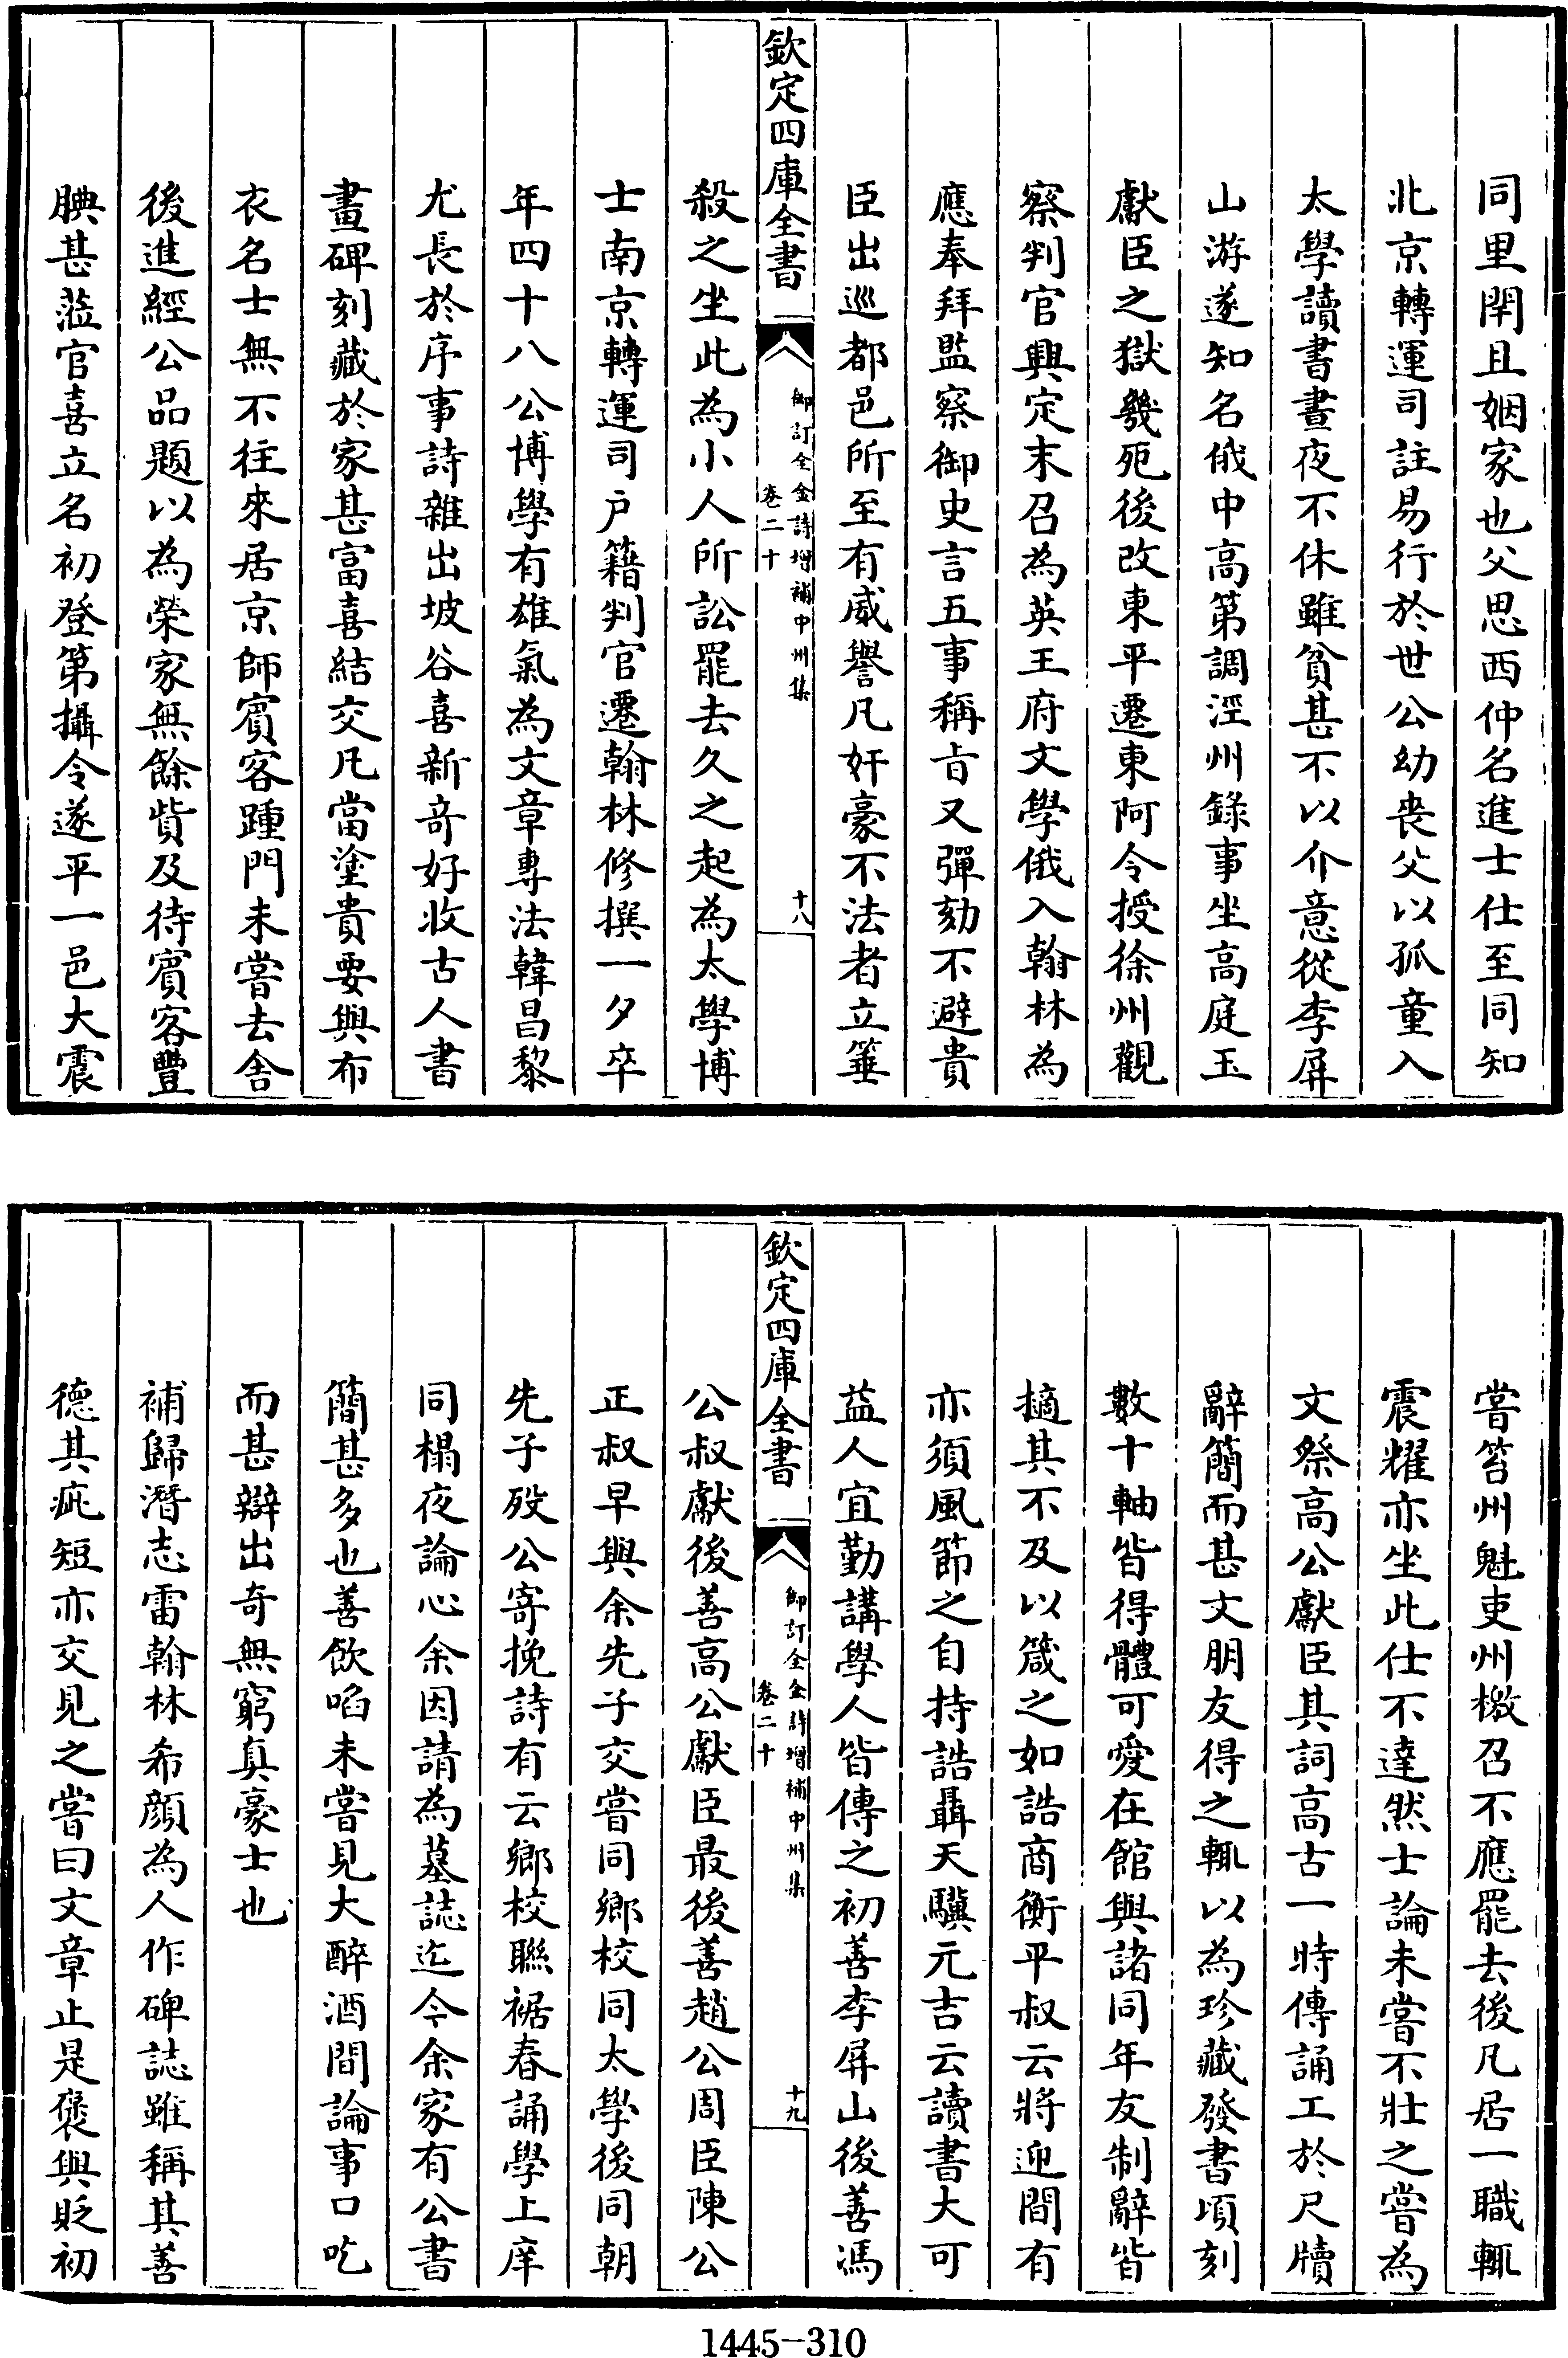 同里閈且姻家也父思西仲名進士仕至同知
北京轉運司註易行於世公幼喪父以孤童入
太學讀書晝夜不休雖貧甚不以介意從李屏
山游遂知名俄中高第調涇州錄事坐高庭玉
獻臣之獄幾死後改東平遷東阿令授徐州觀
察判官興定末召為英王府文學俄入翰林為
應奉拜監察御史言五事稱旨又彈劾不避貴
臣出巡都邑所至有威譽凡奸豪不法者立箠
欽定四庫全書
御訂全金詩增補中州集
卷二十
十八
殺之坐此為小人所訟罷去久之起為太學博
士南京轉運司户籍判官遷翰林修撰一夕卒
年四十八公博學有雄氣為文章專法韓昌黎
尤長於序事詩雜出坡谷喜新奇好收古人書
畫碑刻藏於家甚富喜結交凡當塗貴要與布
衣名士無不往來居京師賓客踵門未嘗去舍
後進經公品題以為榮家無餘貲及待賓客豐
腆甚蒞官喜立名初登第攝令遂平一邑大震
嘗笞州魁吏州檄召不應罷去後凡居一職輒
震耀亦坐此仕不達然士論未嘗不壯之嘗為
文祭高公獻臣其詞高古一時傳誦工於尺牘
辭簡而甚文朋友得之輒以為珍藏發書頃刻
數十軸皆得體可愛在館與諸同年友制辭皆
摘其不及以箴之如誥商衡平叔云將迎間有
亦須風節之自持誥聶天驥元吉云讀書大可
益人宜勤講學人皆傳之初善李屏山後善馮
欽定四庫全書
御訂全金詩增補中州集
卷二十
十九
公叔獻後善高公獻臣最後善趙公周臣陳公
正叔早與余先子交嘗同鄉校同太學後同朝
先子殁公寄挽詩有云鄉校聯裾春誦學上庠
同榻夜論心余因請為墓誌迄今余家有公書
簡甚多也善飲啗未嘗見大醉酒間論事口吃
而甚辯出奇無窮真豪士也
補歸潛志雷翰林希顔為人作碑誌雖稱其善
德其疵短亦交見之嘗曰文章止是襃與貶初
1445-310